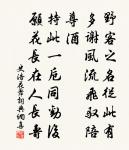 野客名之從此有
多謝風流飛馭陪
尊酒
持此一卮同勸後
願花長在人長壽
史浩花舞詞典網書